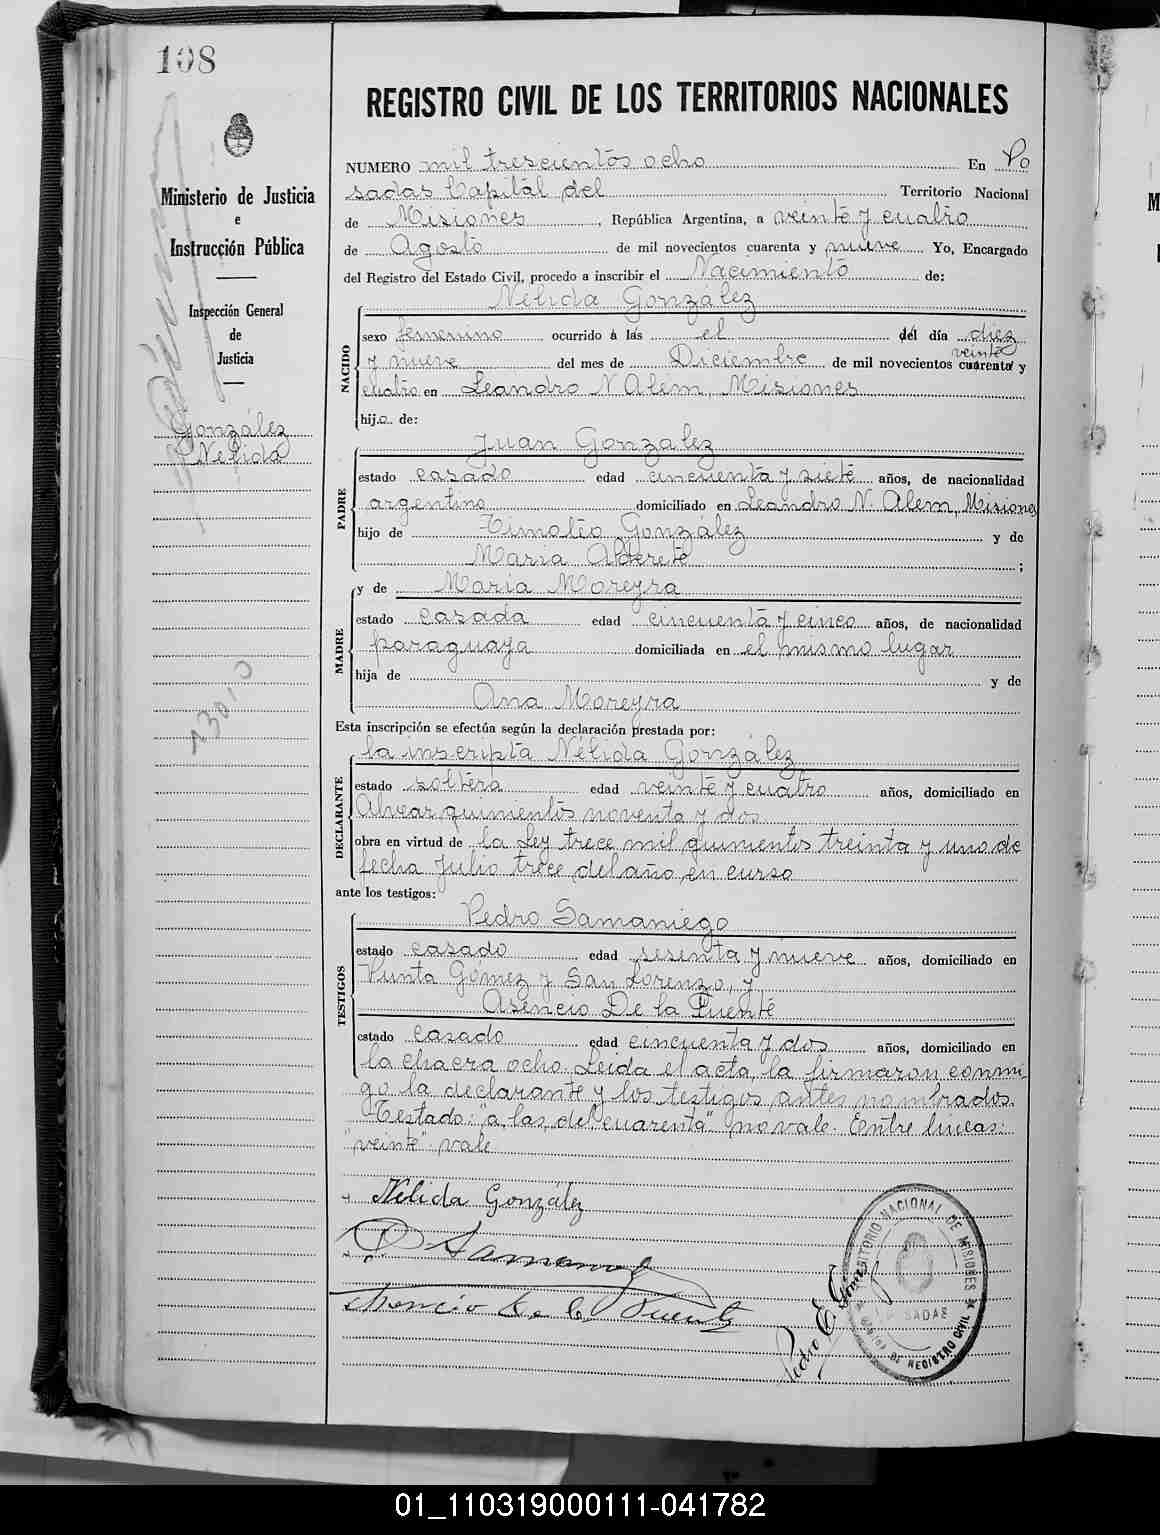 108
Ministerio de Justicia
e
Instrucción Pública
Inspección General
de
Justicia
González
Nélida
REGISTRO CIVIL DE LOS TERRITORIOS NACIONALES
NUMERO mil trescientos ocho En Po
sadas Capital del Territorio Nacional
de Misiones, República Argentina, a veinte y cuatro
de Agosto de mil novecientos cuarenta y nueve Yo, Encargado
del Registro del Estado Civil, procedo a inscribir el Nacimiento de:
Nélida González
NACIDO
sexo femenino ocurrido a las el del día diez
veinte
y nueve del mes de Diciembre de mil novecientos cuarenta y
cuatro en Leandro N Alem, Misiones
hija de:
Juan González
PADRE
estado casado edad cincuenta y siete años, de nacionalidad
argentino domiciliado en Leandro N. Alem, Misiones
hijo de Timoteo González y de
Maria Alderete ;
y de Maria Moreyra
MADRE
estado casada edad cincuenta y cinco años, de nacionalidad
paraguaya domiciliada en el mismo lugar
hija de y de
Ana Moreyra
Esta inscripción se efectúa según la declaración prestada por:
la inscripta Nélida González
DECLARANTE
estado soltera edad veinte y cuatro años, domiciliado en
Alvear quinientos noventa y dos
obra en virtud de la Ley trece mil quinientos treinta y uno de
fecha Julio trece del año en curso
ante los testigos:
Pedro Samaniego
TESTIGOS
estado casado edad sesenta y nueve años, domiciliado en
Punta Gómez y San Lorenzo, y
Asencio De la Puente
estado casado edad cincuenta y dos años, domiciliado en
la chacra ocho. Leida el acta, la firmaron conmi-
go la declarante y los testigos antes nombrados.
Testado: "a las del cuarenta" no vale. Entre líneas:
"veinte" vale
Nélida González
P Samaniego
Asencio de la Puente
Pedro E. Gómez
TERRITORIO NACIONAL DE MISIONES
POSADAS
DE REGISTRO CIVIL
01_110319000111-041782